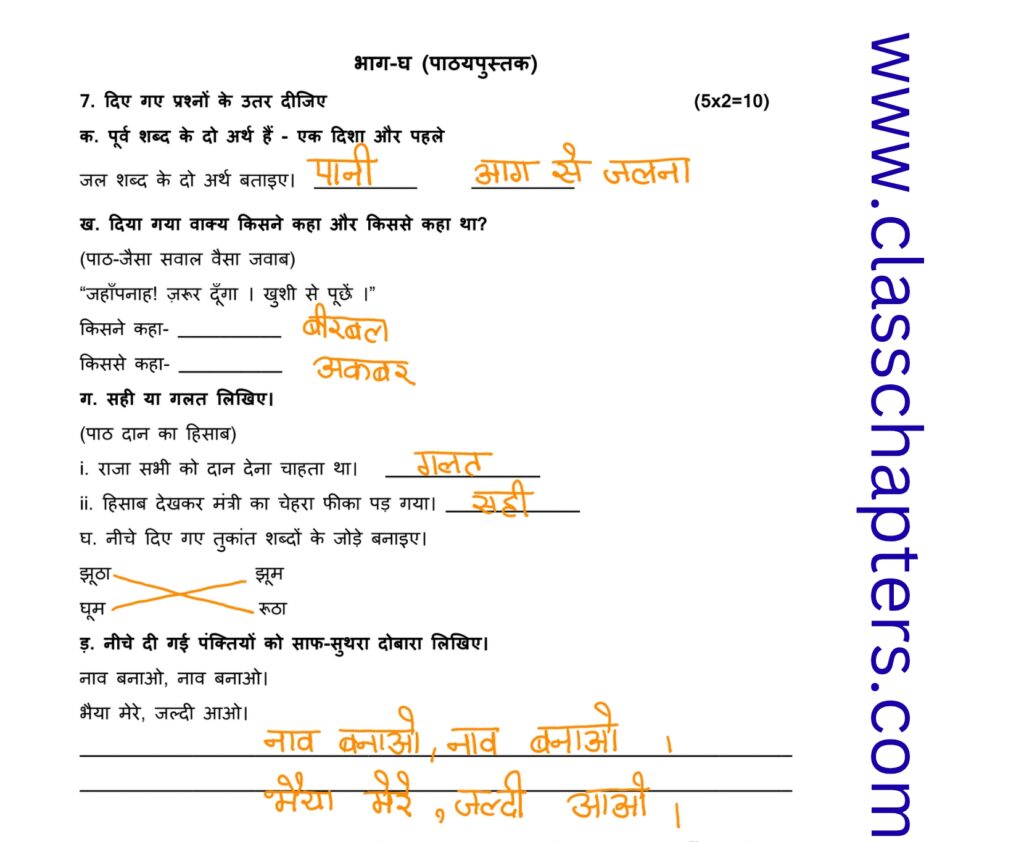 भाग-घ (पाठयपुस्तक)
7. दिए गए प्रश्नों के उतर दीजिए (5x2=10)
क. पूर्व शब्द के दो अर्थ हैं - एक दिशा और पहले
जल शब्द के दो अर्थ बताइए। पानी आग से जलना
ख. दिया गया वाक्य किसने कहा और किससे कहा था?
(पाठ-जैसा सवाल वैसा जवाब)
“जहाँपनाह! ज़रूर दूँगा । खुशी से पूछें ।”
किसने कहा- बीरबल
किससे कहा- अकबर
ग. सही या गलत लिखिए।
(पाठ दान का हिसाब)
i. राजा सभी को दान देना चाहता था। गलत
ii. हिसाब देखकर मंत्री का चेहरा फीका पड़ गया। सही
घ. नीचे दिए गए तुकांत शब्दों के जोड़े बनाइए।
झूठा झूम
घूम रूठा
ड़. नीचे दी गई पंक्तियों को साफ-सुथरा दोबारा लिखिए।
नाव बनाओ, नाव बनाओ।
भैया मेरे, जल्दी आओ।
नाव बनाओ, नाव बनाओ ।
भैया मेरे, जल्दी आओ ।
www.classchapters.com